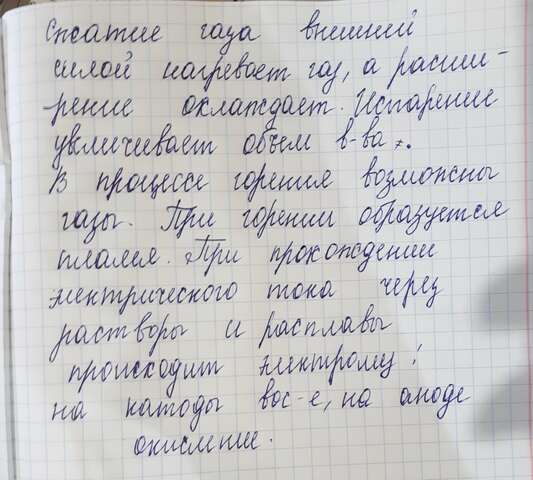 Сжатие газа внешней
силой нагревает газ, а расши-
рение охлаждает. Испарение
увеличивает объем в-ва.
В процессе горения возможны
газы. При горении образуется
пламя. При прохождении
электрического тока через
растворы и расплавы
происходит электролиз:
на катоды вос-е, на аноде
окисление.